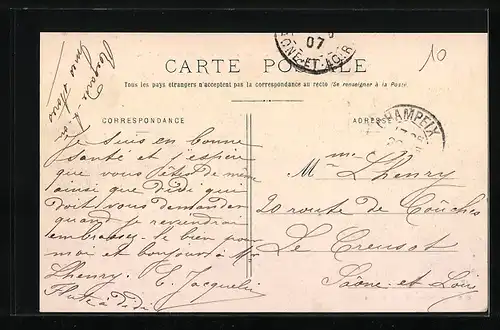 07
ONE-ET-LOIR
10
CARTE POSTALE
Tous les pays étrangers n'acceptent pas la correspondance au recto (Se renseigner à la Poste)
CORRESPONDANCE
ADRESSE
CHAMPEIX
Je suis en bonne
santé et j'espère
que vous l'êtes de même
ainsi que dédé qui
doit vous demander
quand je reviendrai
embrassez-le bien pour
moi et bonjour à Mr
Lhenry. E. Jacquelin
à dédé
Mme Lhenry
20 route de Couches
Le Creusot
Saône et Loir